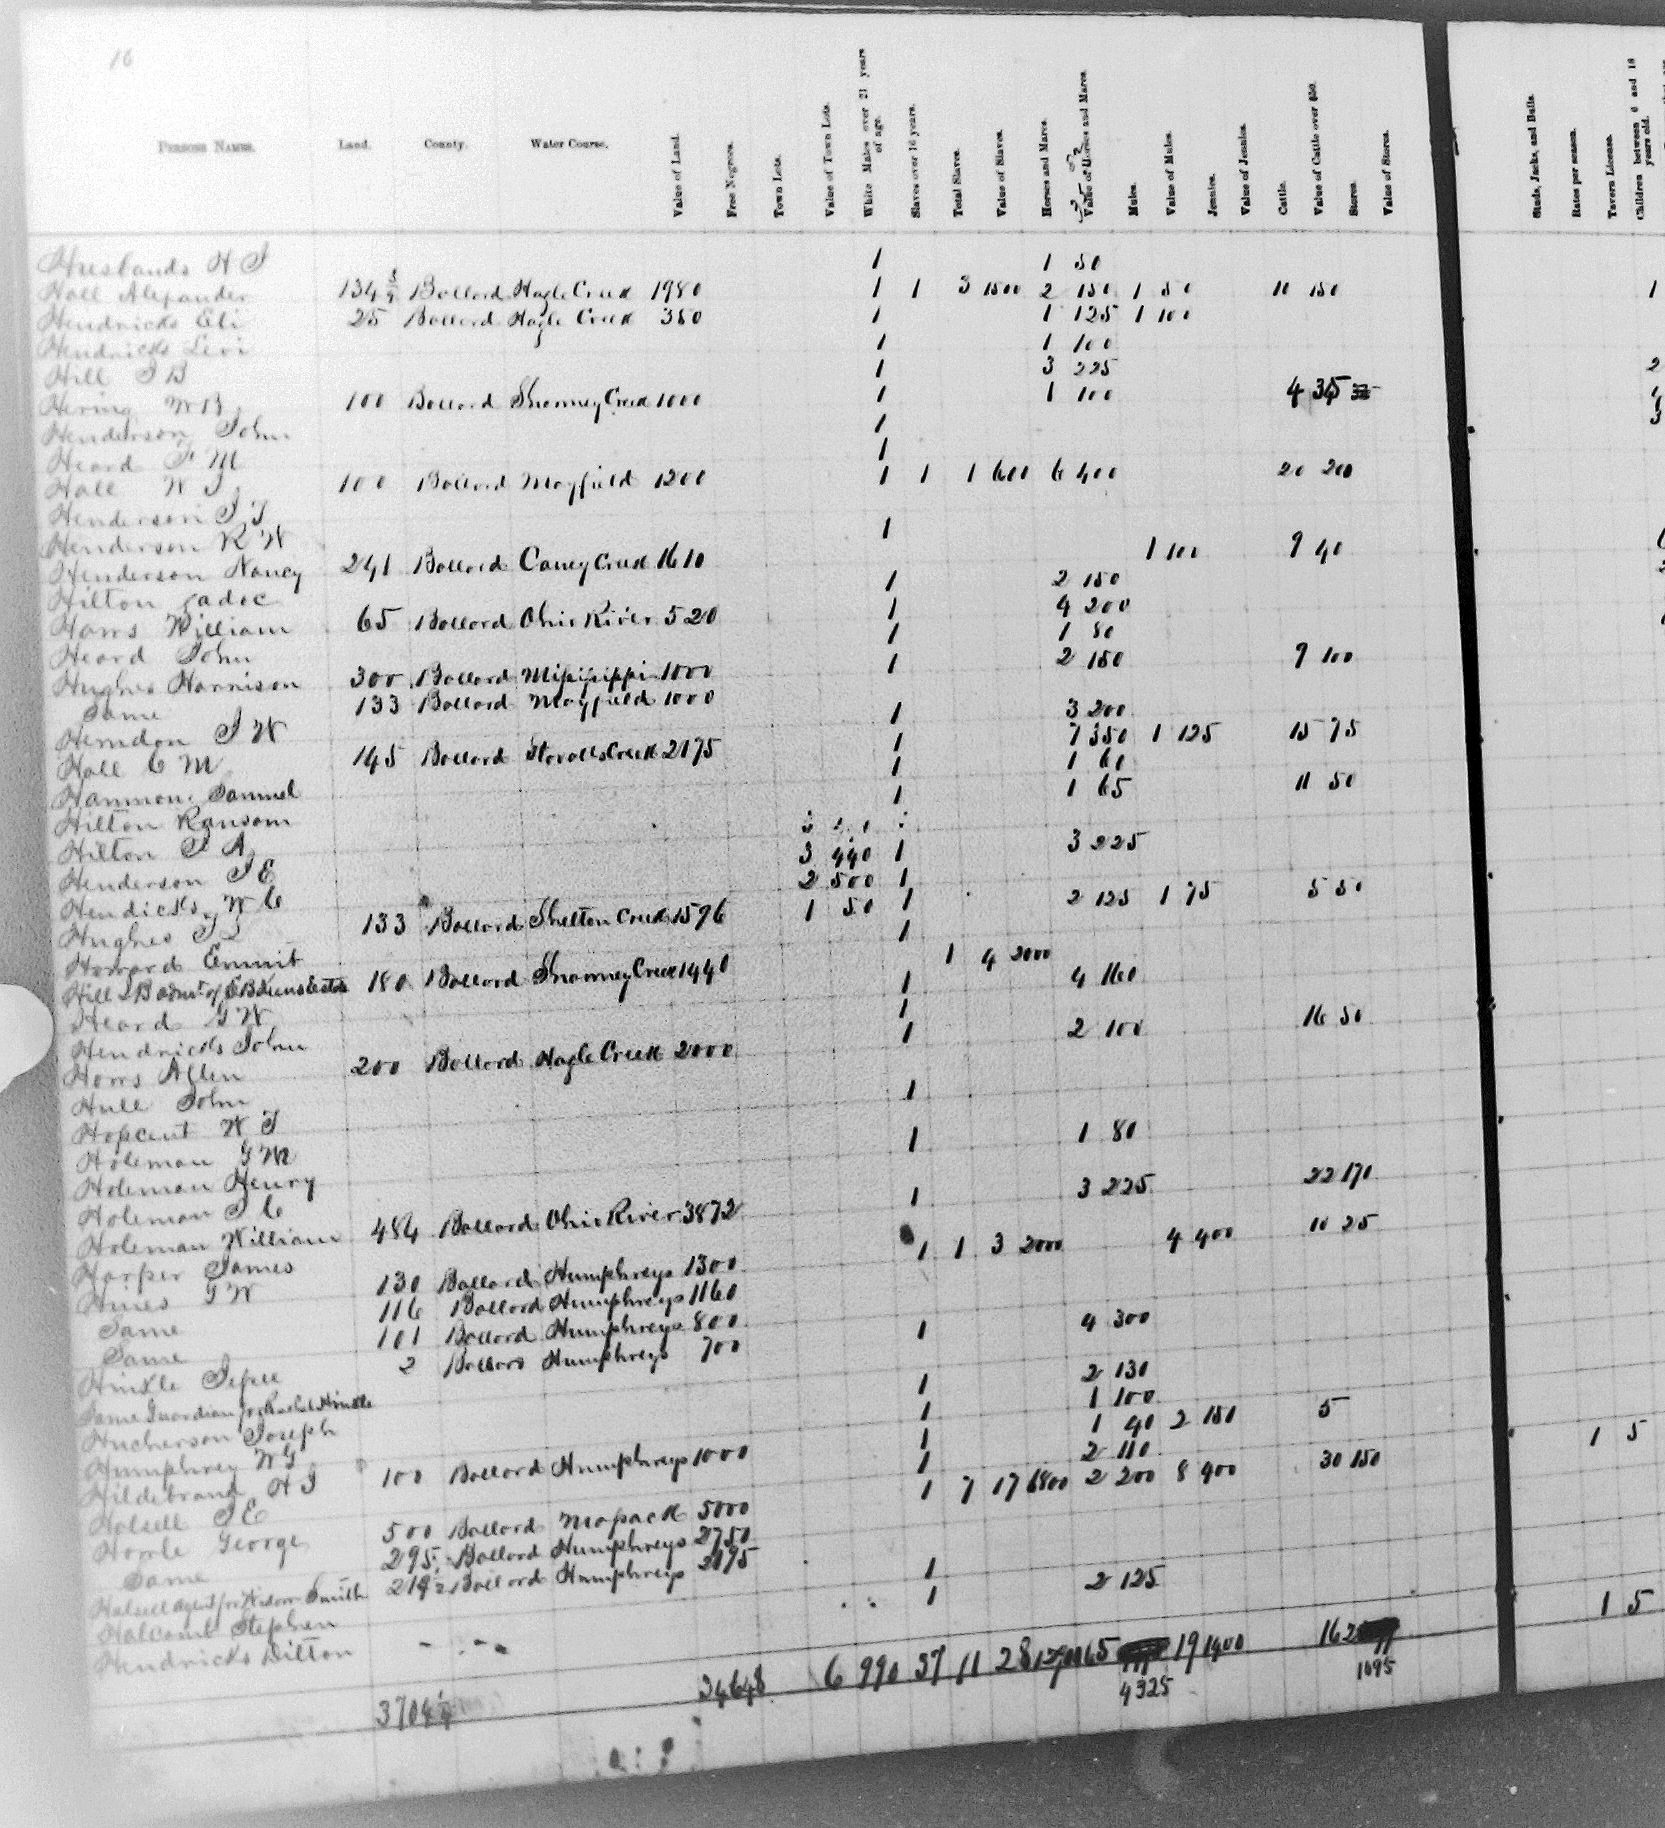 16
PERSONS NAMES. Land. County. Water Course. Value of Land. Free Negroes. Town Lots. Value of Town Lots. White Males over 21 years of age. Slaves over 16 years. Total Slaves. Value of Slaves. Horses and Mares. Value of Horses and Mares. Mules. Value of Mules. Jennies. Value of Jennies. Cattle. Value of Cattle over $50. Stores. Value of Stores. Studs, Jacks, and Bulls. Rates per season. Tavern License. Children between 6 and 18 years old.
Huslands H J 1 1 50
Hall Alexander 134 Ballard Hazle Creek 1980 1 1 3 1500 2 150 1 50 10 150 1
Hendricks Eli 25 Ballard Hazle Creek 380 1 1 125 1 100
Hendricks Levi 1 1 100
Hill J B 1 3 225 2
Hering W B 100 Ballard Shawney Creek 1000 1 1 100 4 35
Henderson John 1 3
Heard F M 1
Hall W J 100 Ballard Mayfield 1200 1 1 1 600 6 400 20 200
Henderson J T
Henderson R W 1
Henderson Nancy 241 Ballard Caney Creek 1610 1 100 9 40
Hilton Zadoc 1 2 150
Harris William 65 Ballard Ohio River 520 1 4 200
Heard John 1 1 80
Hughes Harrison 300 Ballard Missisippi 1000 1 2 150 9 100
Same 133 Ballard Mayfield 1000
Herndon J W 1 3 200
Hall C M 145 Ballard Stovalls Creek 2175 1 7 350 1 125 15 75
Hammon Samuel 1 1 60
Hilton Ransom 1 1 65 11 50
Hilton J A
Henderson J E 3 440 1 3 225
Hendicks W C 2 500 1
Hughes J 133 Ballard Shelton Creek 1596 1 50 1 2 125 1 75 5 50
Howard Emmit 1
Hill J B admr of 180 Ballard Shawney Creek 1440 1 4 2000
Heard G W 1 4 160
Hendricks John 1
Harris Allen 200 Ballard Hazle Creek 2000 1 2 100 16 50
Hull John
Hopcut W J 1
Holeman G M
Holeman Henry 1 1 80
Holeman J C
Holeman William 484 Ballard Ohio River 3872 1 3 225 22 170
Harper James
Hines G W 130 Ballard Humphreys 1300 1 1 3 2000 4 400 10 25
Same 116 Ballard Humphreys 1160
Same 101 Ballard Humphreys 800
Hinkle Jesse 2 Ballard Humphreys 700 1 4 300
Same Guardian for Rachel Hinkle
Hucherson Joseph 1 2 130
Humphrey W G 1 1 100
Hildebrand H J 100 Ballard Humphreys 1000 1 1 40 2 150 5
Halsell J E 1 2 110 1 5
Howle George 500 Ballard Mapack 5000 1 7 17 6800 2 200 8 400 30 150
Same 295 Ballard Humphreys 2750
Halsell agent for Smith 219½ Ballard Humphreys 2195
Halcomb Stephen 1
Hendricks Dilton 1 2 125 1 5
3704 34648 6 990 37 11 28 165 19 1400 162
4325 1095